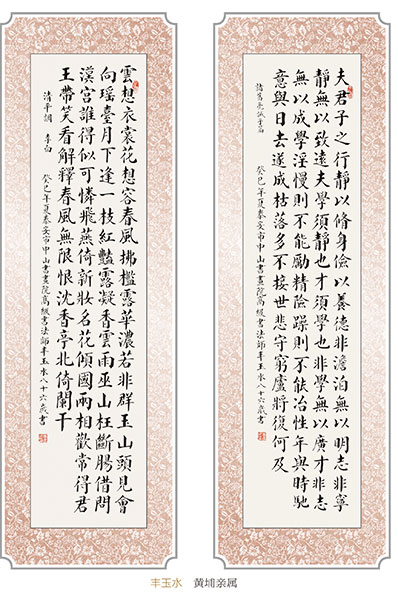 夫君子之行靜以脩身儉以養德非澹泊無以明志非寧
靜無以致遠夫學須靜也才須學也非學無以廣才非志
無以成學淫慢則不能勵精險躁則不能冶性年與時馳
意與日去遂成枯落多不接世悲守窮廬將復何及
諸葛亮誡子書 癸巳年夏泰安市中山書畫院高級書法師丰玉水八十六歲書
雲想衣裳花想容春風拂檻露華濃若非群玉山頭見會
向瑤臺月下逢一枝紅艷露凝香雲雨巫山枉斷腸借問
漢宮誰得似可憐飛燕倚新妝名花傾國兩相歡常得君
王帶笑看解釋春風無限恨沈香亭北倚闌干
清平調 李白 癸巳年夏泰安市中山書畫院高級書法師丰玉水八十六歲書
丰玉水 黄埔亲属